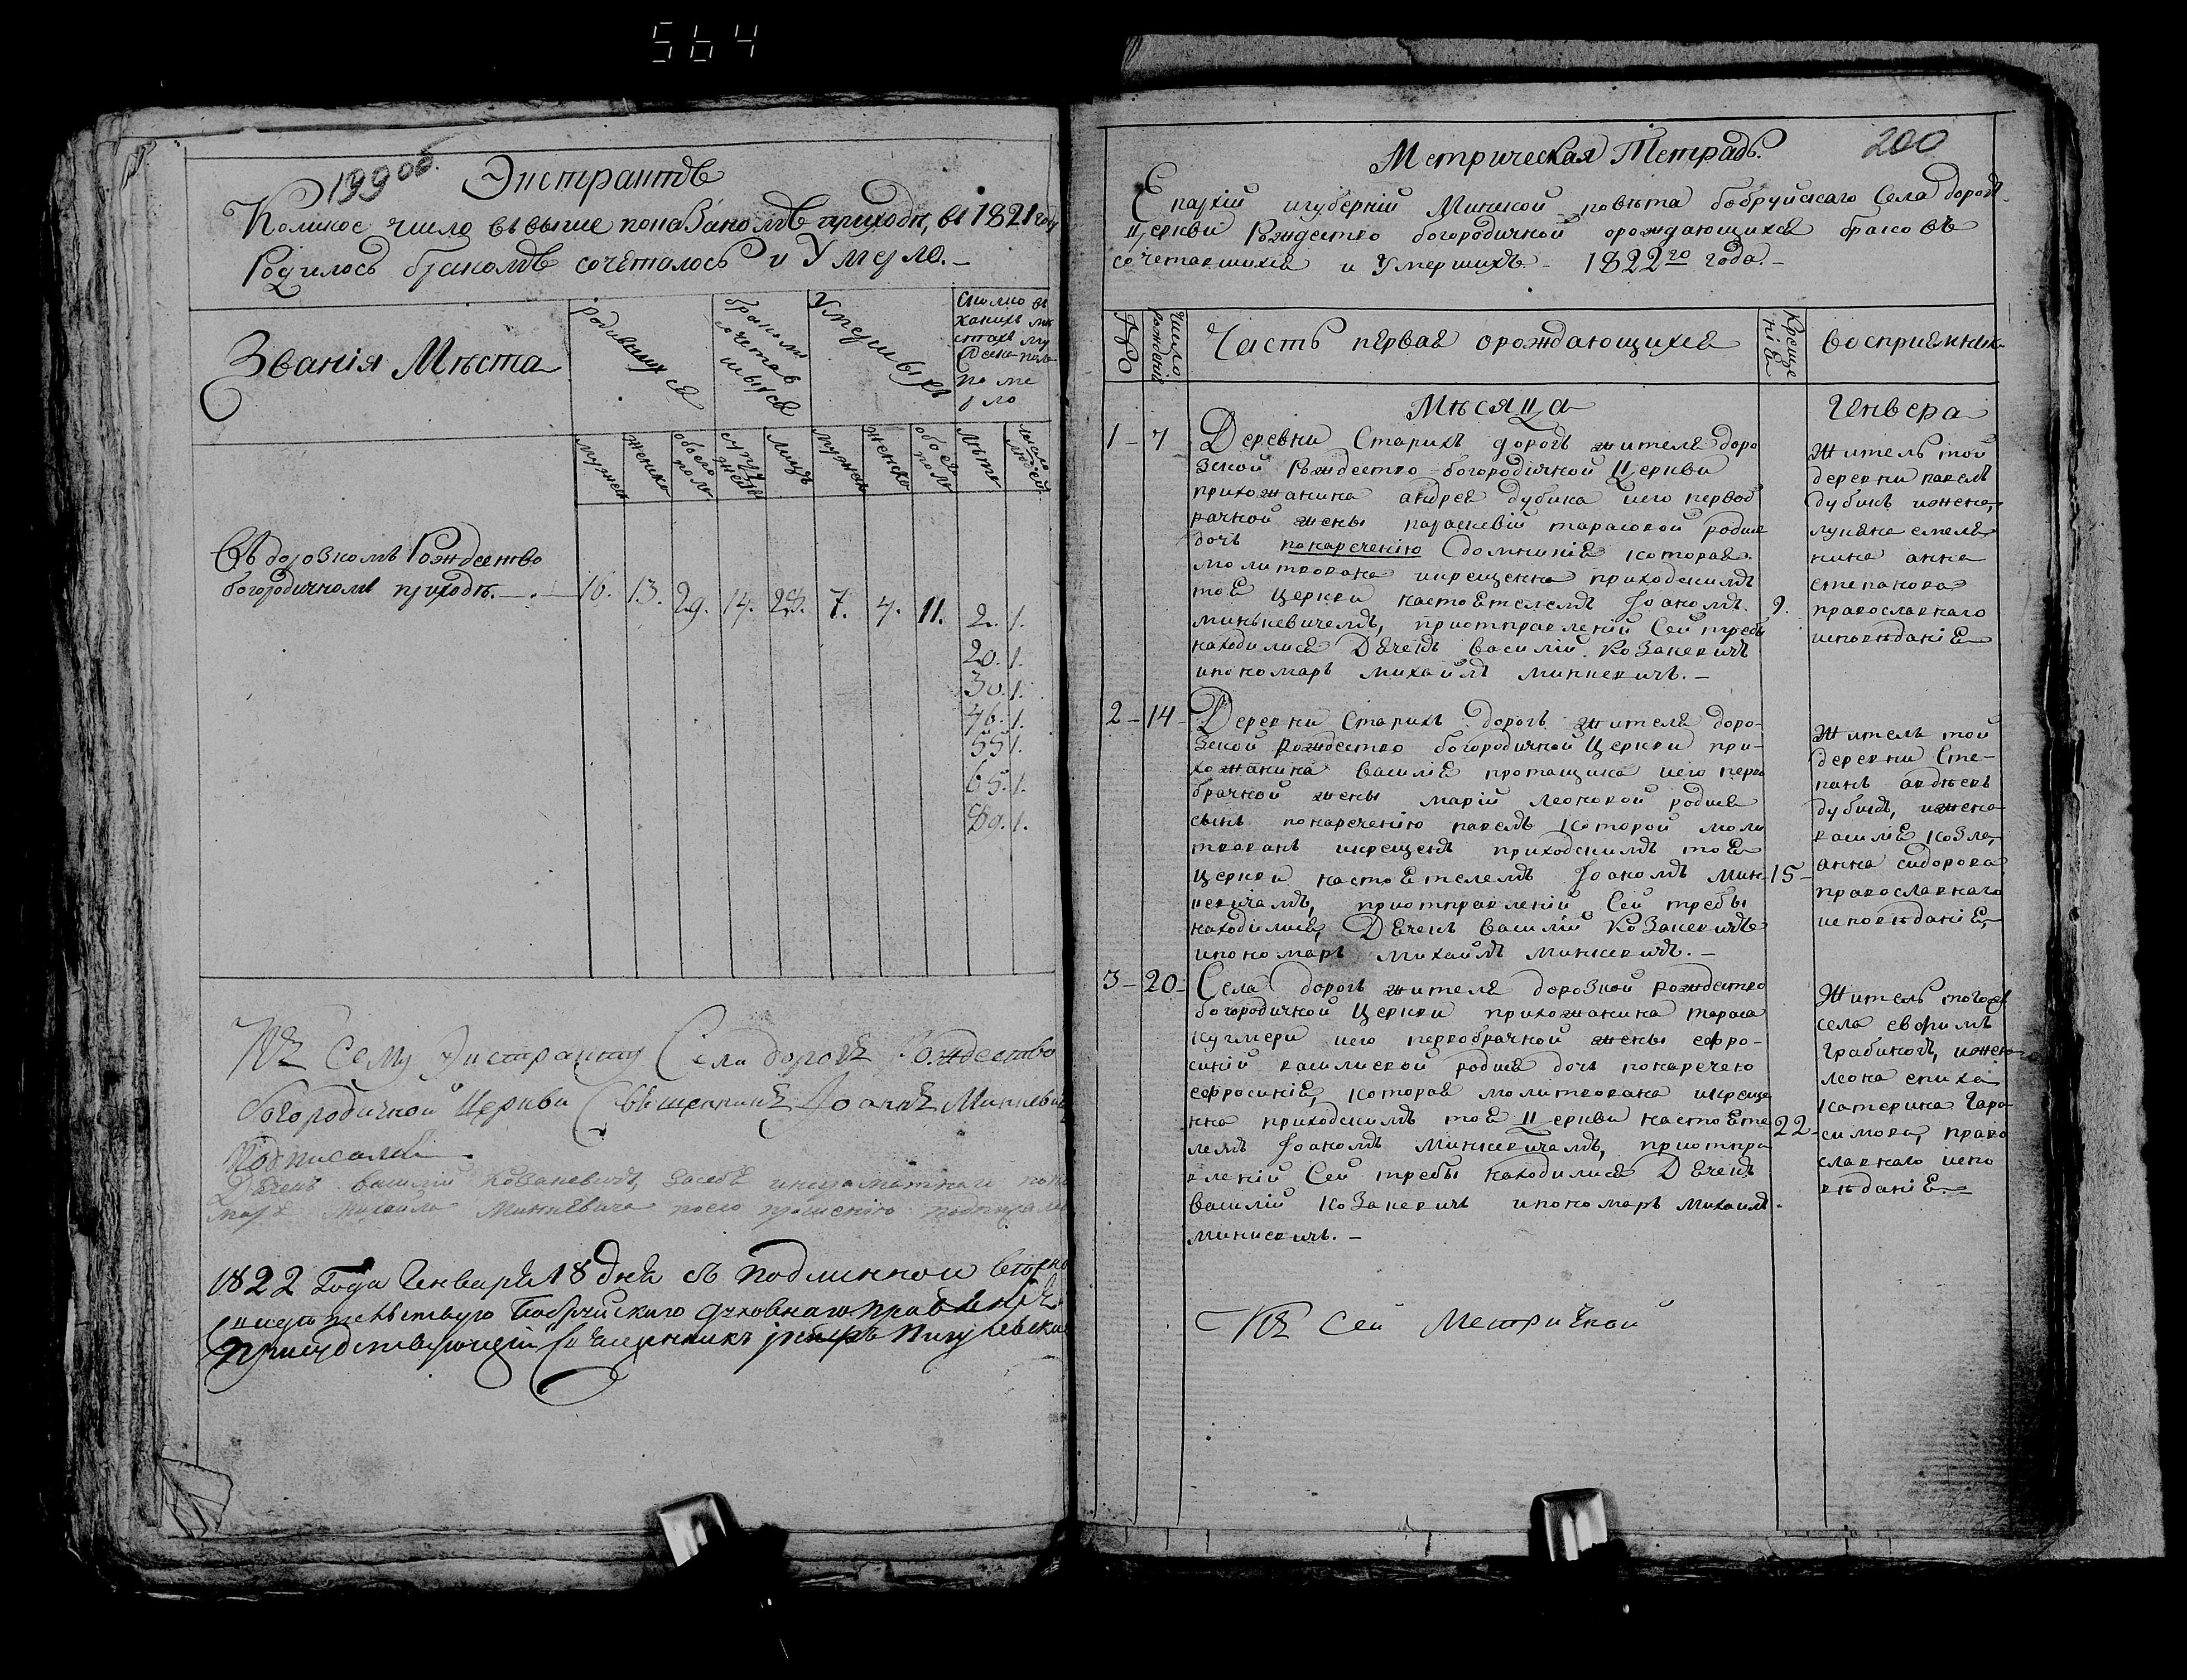 564
199 об.
Экстрактъ
Коликое число въ выше показаномъ приходѣ, въ 1821 году
Родилось бракомъ сочеталось и Умерло.
Званія Мѣста
родившихся
бракомъ сочетавшыхся
Умершыхъ
мужеск
женско
обоего полу
супружествъ
лицъ
мужеск
женско
обоего полу
лѣта
число людей
Въ дорозкомъ Рождество
богородичномъ приходѣ. 16. 13. 29. 14. 28. 7. 4. 11. 2. 1.
20. 1.
30. 1.
46. 1.
55 1.
65. 1.
80. 1.
Къ Сему Экстракту Села Дорогъ Рождество
Богородичной Церкви Священникъ Іоаннъ Минкевичъ
Подписался
Дячекъ василий Козакевичъ, засебе инеграмотнаго поно
маря Михаила Минкевича поего прошению подписался
1822 Года Генваря 18 дня съ подлинной
Бобруйского духовнаго правления
Присудствующий Священникъ
200
Метрическая Тетрадь.
Епархій игуберній Минской повѣта бобруйскаго Села дорогъ
Церкви Рождество богородичной орождающихся браковъ
сочетавшихся и Умершихъ 1822го года.
Число рожденій
Часть первая орождающихся
Крещеніе
восприемник
Мѣсяца
Генвера
1 - 7 Деревни Старихъ дорогъ жителя доро
зской Рождество богородичной Церкви
прихожанина андрея дубика иего первоб
рачной жены параскевій тарасовой родися
дочь понаречению домникия которая
молитвована икрещенна приходскимъ
тоя Церкви настоятелемъ Іоаномъ 9.
минкевичемъ, приотправлений Сей требы
находилися Дячекъ василий Козакевичъ
ипономарь михайлъ минкевичъ.
Житель той
деревни павелъ
дубикъ ижена,
лукяна емеля
ника анна
степанова
православнаго
исповѣдания
2 - 14 Деревни Старихъ Дорогъ жителя доро-
зской Рождество богородичной Церкви при-
хожанина василия протащика иего перво
брачной жены марій леоновой родися
сынъ понаречению павелъ которой моли
твованъ икрещенъ приходскимъ тоя
церкви настоятелемъ Іоаномъ Мин- 15
кевичамъ, приотправлений Сей требы
находилися, Дячекъ василий Козакевичъ
ипономарь михаилъ минкевичъ.
Житель той
деревни Сте-
панъ авдѣевъ
дубикъ, ижена
василия козла,
анна сидорова
православнаго
исповѣдания,
3 - 20 Села дорогъ жителя дорозкой рождество
богородичной Церкви прихожанина тараса
кушмери иего первобрачной жены ефро-
синій васильевой родися дочь понаречено
ефросиния, которая молитвована икреще
нна приходскимъ тоя Церкви настояте 22
лемъ Іоаномъ минкевичамъ, приотпра
влений Сей требы находилися Дячекъ
василий козакевичъ ипономарь михаилъ
минкевичъ.
Житель тогожъ
села ефримъ
Грабикотъ, ижена
леона спиха
катерина Гара-
симова, право
славнаго испо
вѣдания
Къ Сей Метричной